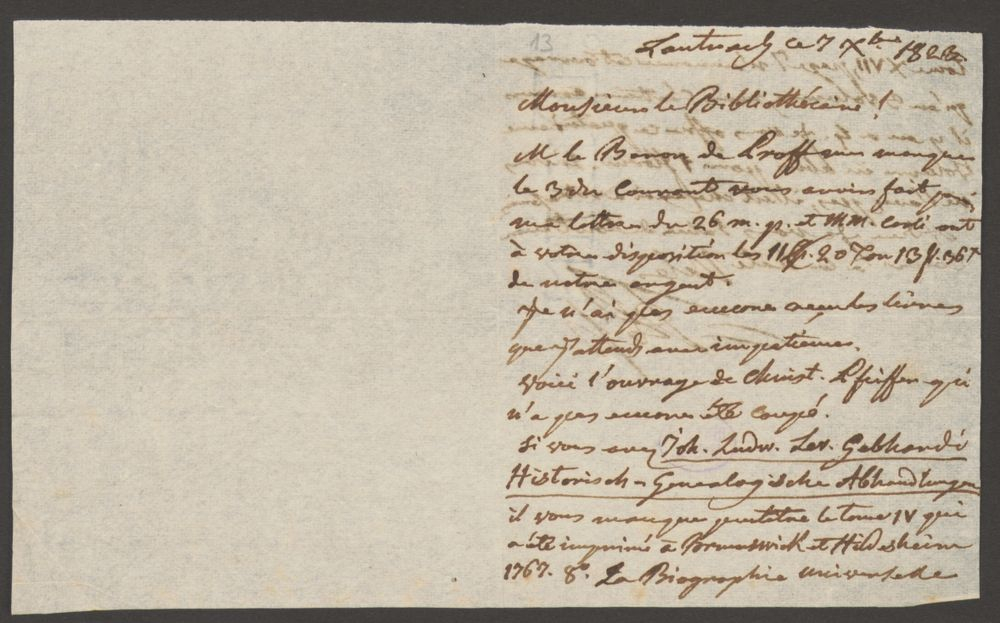 13
Lautrach ce 7 Xbre 182
Monsieur le Bibliothécaire!
M. le Baron de Proff me marque
le 3 du Courant vous avoir fait
ma lettre du 26 m. p. et MM. ont
à votre disposition les 11 20 13 fl. 36 x
de notre argent.
Je n'ai pas encore reçu les livres
que j'attends avec impatience.
Voici l'ouvrage de Christ. Pfeiffer qui
n'a pas encore été coupé.
Si vous avez Joh. Ludw. Lev. Gebhardi
Historisch-Genealogische Abhandlungen
il vous manque peutetre le tome IV qui
a été imprimé à Brunswick et Hildesheim
1767. 8º. La Biographie universelle